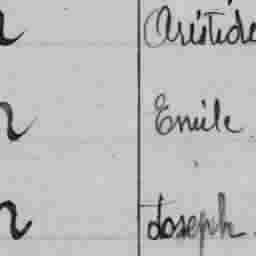 Aristide
Emile
Joseph.